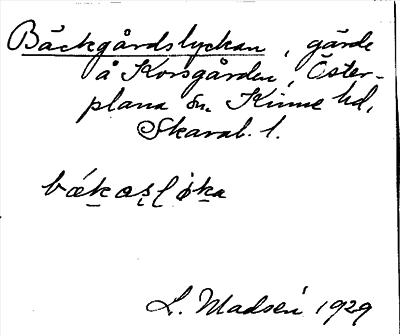 Bäckgårdslyckan, gärde
å Korsgården, Öster-
plana sn. Kinne hd,
Skarab. l.
bækaṣl̥øka
L. Madsén 1929